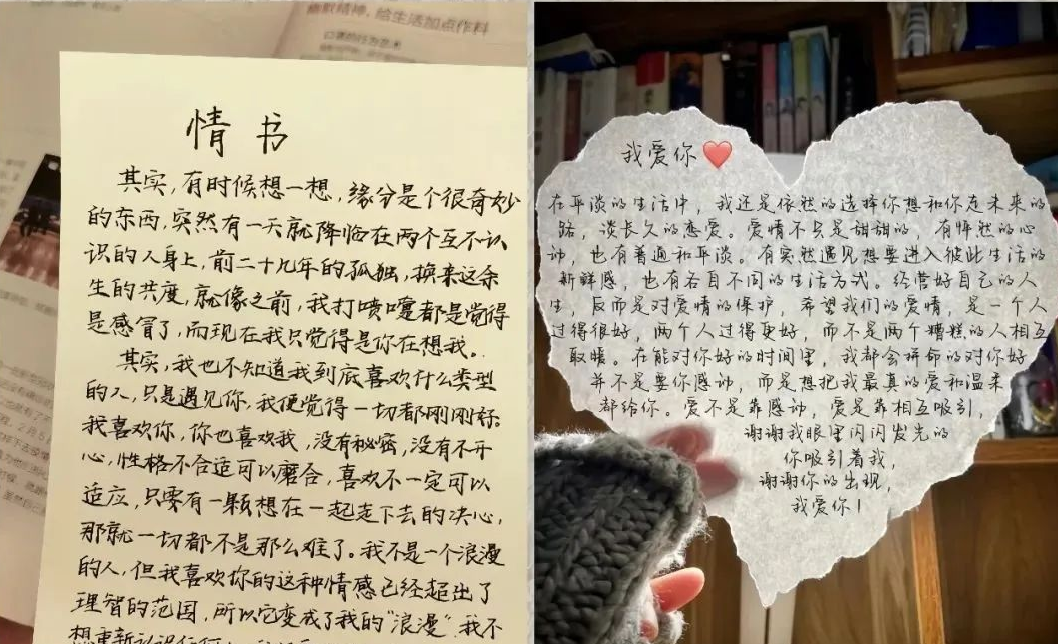 幽默精神，给生活加点作料
情书
其实，有时候想一想，缘分是个很奇妙
的东西，突然有一天就降临在两个互不认
识的人身上，前二十九年的孤独，换来这余
生的共度，就像之前，我打喷嚏都是觉得
是感冒了，而现在我只觉得是你在想我。
其实，我也不知道我到底喜欢什么类型
的人，只是遇见你，我便觉得一切都刚刚好。
我喜欢你，你也喜欢我，没有秘密，没有不开
心，性格不合适可以磨合，喜欢不一定可以
适应，只要有一颗想在一起走下去的决心，
那就一切都不是那么难了。我不是一个浪漫
的人，但我喜欢你的这种情感已经超出了
理智的范围，所以它变成了我的“浪漫”，我不
想重新认识任何
我爱你❤️
在平淡的生活中，我还是依然的选择你想和你走未来的
路，谈长久的恋爱。爱情不只是甜甜的，有怦然的心
动，也有普通和平淡。有突然遇见想要进入彼此生活的
新鲜感，也有各自不同的生活方式。经营好自己的人
生，反而是对爱情的保护，希望我们的爱情，是一个人
过得很好，两个人过得更好，而不是两个糟糕的人相互
取暖。在能对你好的时间里，我都会拼命的对你好
并不是要你感动，而是想把我最真的爱和温柔
都给你。爱不是靠感动，爱是靠相互吸引，
谢谢我眼里闪闪发光的
你吸引着我，
谢谢你的出现，
我爱你！